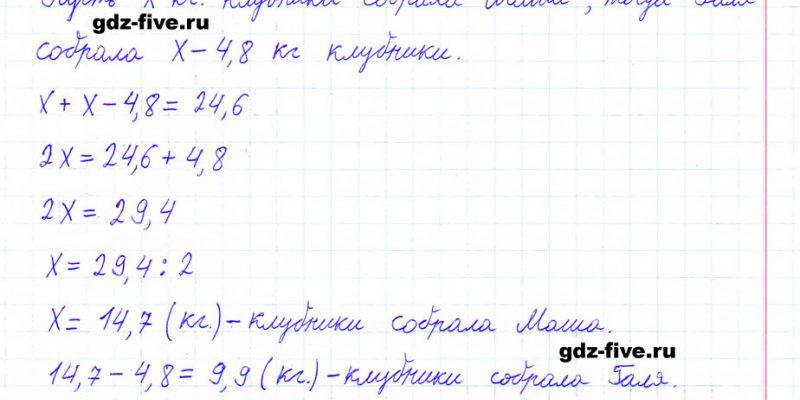 Пусть x кг. клубники собрала Маша, тогда Галя
gdz-five.ru
собрала x - 4,8 кг клубники.
x + x - 4,8 = 24,6
2x = 24,6 + 4,8
2x = 29,4
x = 29,4 : 2
x = 14,7 (кг.) - клубники собрала Маша.
gdz-five.ru
14,7 - 4,8 = 9,9 (кг.) - клубники собрала Галя.